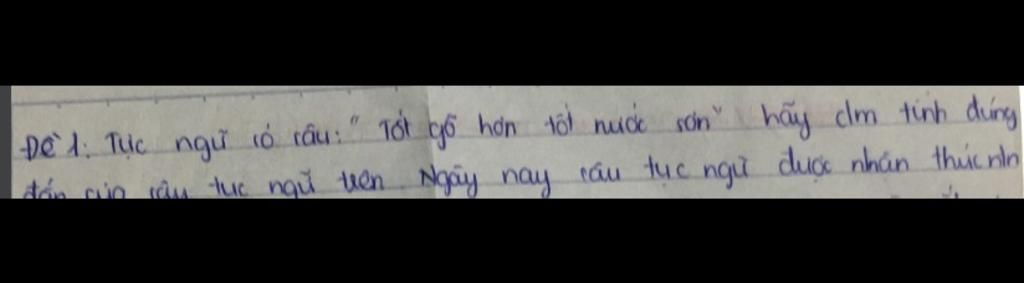 Đề 1: Tục ngữ có câu: " Tốt gỗ hơn tốt nước sơn" hãy c/m tính đúng
đắn của câu tục ngữ trên Ngày nay câu tục ngữ được nhân thức ntn